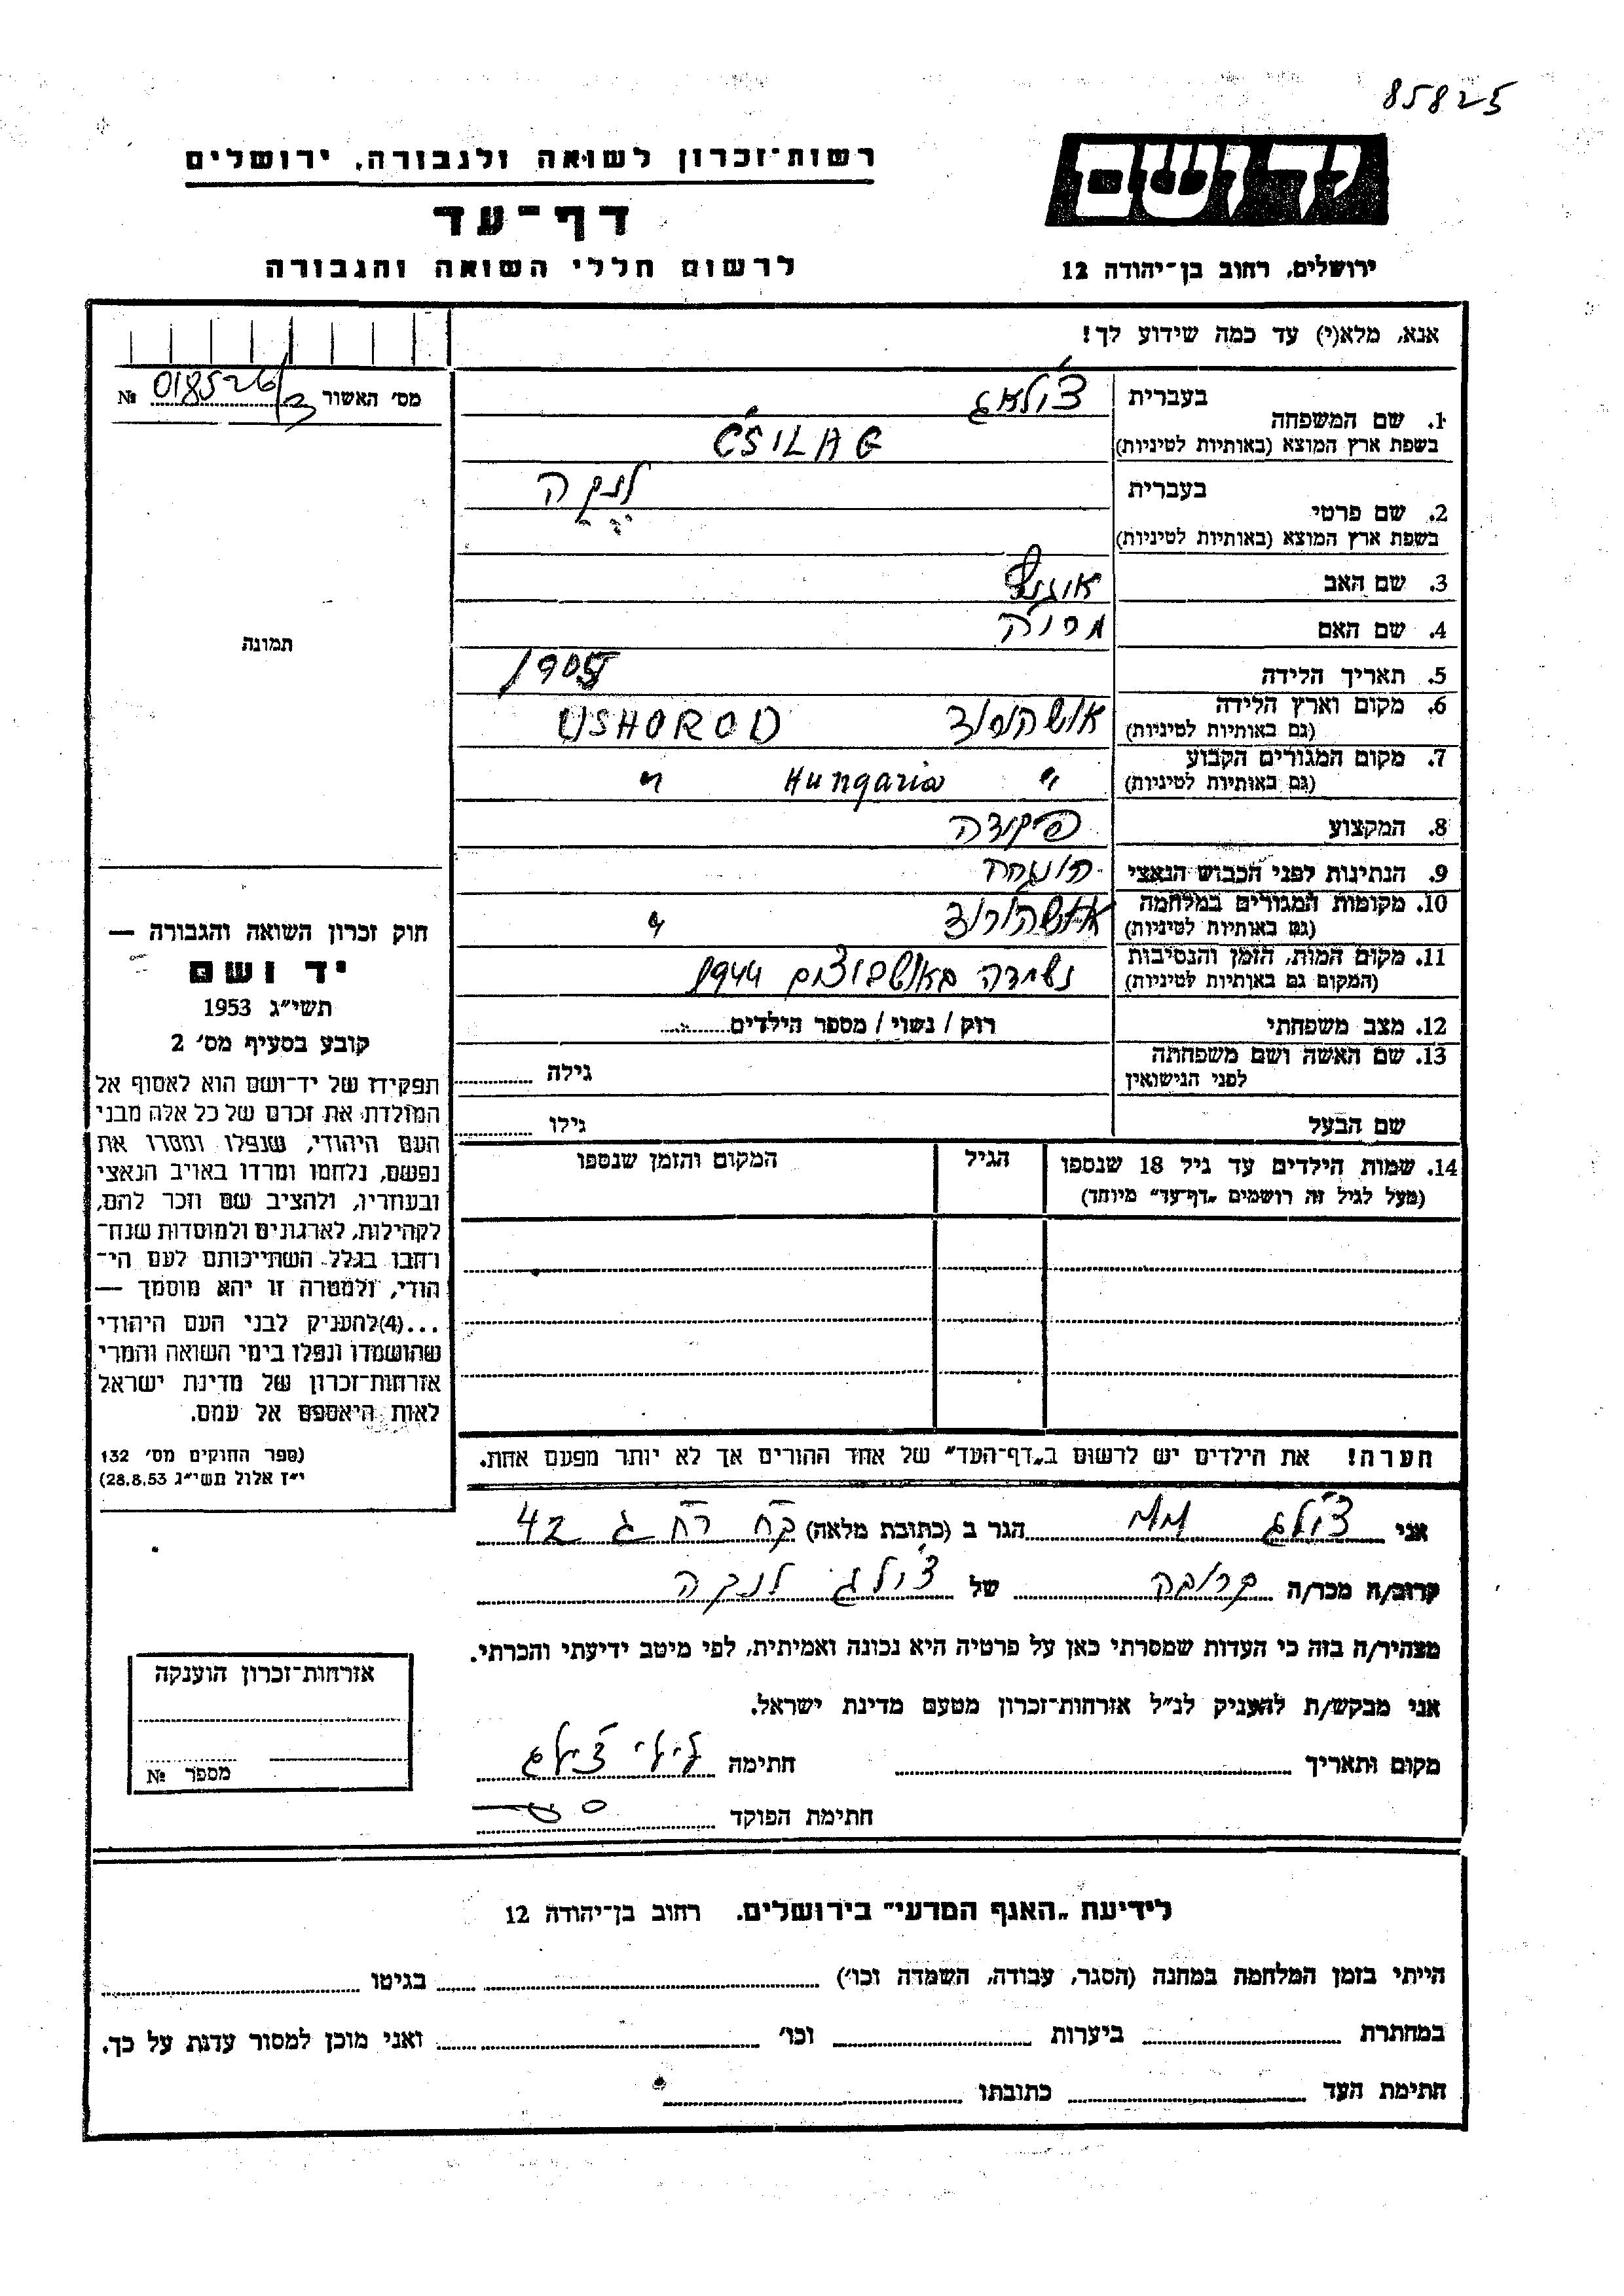 85825
רשות־זכרון לשואה ולגבורה, ירושלים
יד ושם
דף־עד
לרשום חללי השואה והגבורה
ירושלים, רחוב בן־יהודה 12
אנא, מלא(י) עד כמה שידוע לך!
מס׳ האשור 018526/3 №
תמונה
1. שם המשפחה
בעברית צ׳ילאג
בשפת ארץ המוצא (באותיות לטיניות) CSILAG
2. שם פרטי
בעברית לנקה
בשפת ארץ המוצא (באותיות לטיניות)
3. שם האב
4. שם האם
5. תאריך הלידה 1905
6. מקום וארץ הלידה
(גם באותיות לטיניות) אושהורוד USHOROD
7. מקום המגורים הקבוע
(גם באותיות לטיניות) " Hungaria "
8. המקצוע פקידה
9. הנתינות לפני הכבוש הנאצי
10. מקומות המגורים במלחמה
(גם באותיות לטיניות) אושהורוד "
11. מקום המות, הזמן והנסיבות
(המקום גם באותיות לטיניות) נשמדה באושביצים 1944
12. מצב משפחתי רוק / נשוי / מספר הילדים
13. שם האשה ושם משפחתה
לפני הנישואין גילה
שם הבעל גילו
14. שמות הילדים עד גיל 18 שנספו הגיל המקום והזמן שנספו
(מעל לגיל זה רושמים „דף־עד” מיוחד)
הערה! את הילדים יש לרשום ב„דף־העד” של אחד ההורים אך לא יותר מפעם אחת.
חוק זכרון השואה והגבורה —
יד ושם
תשי״ג 1953
קובע בסעיף מס׳ 2
תפקידו של יד־ושם הוא לאסוף אל
המולדת את זכרם של כל אלה מבני
העם היהודי, שנפלו ומסרו את
נפשם, נלחמו ומרדו באויב הנאצי
ובעוזריו, ולהציב שם וזכר להם,
לקהילות, לארגונים ולמוסדות שנח־
רבו בגלל השתייכותם לעם הי־
הודי, ולמטרה זו יהא מוסמך —
...(4)להעניק לבני העם היהודי
שהושמדו ונפלו בימי השואה והמרי
אזרחות־זכרון של מדינת ישראל
לאות היאספם אל עמם.
(ספר החוקים מס׳ 132
י״ז אלול תשי״ג 28.8.53)
אני צ׳ילג הגר ב (כתובת מלאה) 42
קרוב/ה מכר/ה קרובה של צ׳ילג לנקה
מצהיר/ה בזה כי העדות שמסרתי כאן על פרטיה היא נכונה ואמיתית, לפי מיטב ידיעתי והכרתי.
אני מבקש/ת להעניק לנ״ל אזרחות־זכרון מטעם מדינת ישראל.
מקום ותאריך חתימה לילי צ׳ילג
חתימת הפוקד
אזרחות־זכרון הוענקה
מספר №
לידיעת „האגף המדעי” בירושלים. רחוב בן־יהודה 12
הייתי בזמן המלחמה במחנה (הסגר, עבודה, השמדה וכו׳) בגיטו
במחתרת ביערות וכו׳ ואני מוכן למסור עדות על כך.
חתימת העד כתובתו